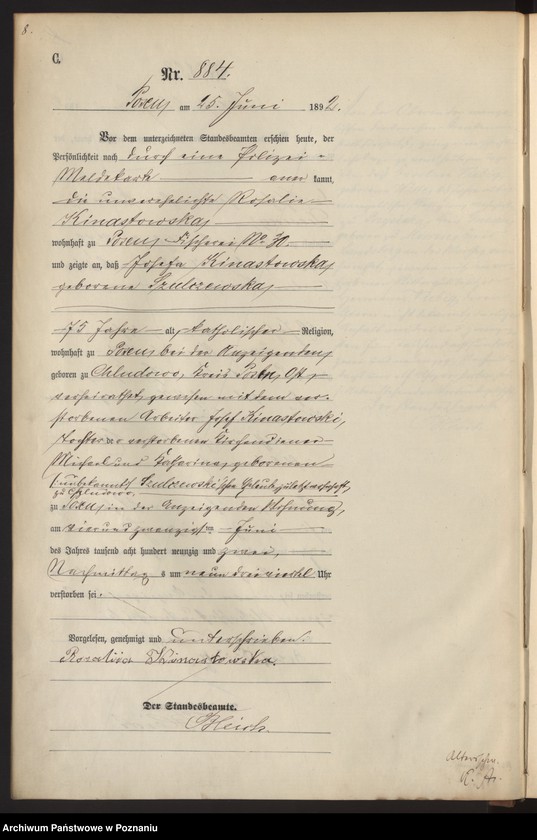 8.
C.
Nr. 884.
Posen, am 25. Juni 1892.
Vor dem unterzeichneten Standesbeamten erschien heute, der
Persönlichkeit nach durch eine Polizei-
Meldekarte anerkannt,
die unverehelichte Rosalie
Kinastowska,
wohnhaft zu Posen, Fischerei No 30.
und zeigte an, daß Josefa Kinastowska,
geborene Szulczewska,
75 Jahre alt, katholischer Religion,
wohnhaft zu Posen, bei der Anzeigenden,
geboren zu Chludowo, Kreis Posen Ost,
verheirathet gewesen mit dem ver-
storbenen Arbeiter Josef Kinastowski,
Tochter der verstorbenen Kirchendiener
Michael und Katharina, geborenen
(unbekannt) Szulczewski'schen Eheleute, zuletzt wohnhaft,
zu Chludowo.
zu Posen, in der Anzeigenden Wohnung,
am vierundzwanzigsten Juni
des Jahres tausend acht hundert neunzig und zwei,
Nachmittags um neun dreiviertel Uhr
verstorben sei.
Vorgelesen, genehmigt und unterschrieben.
Rozalija Kinastowska.
Der Standesbeamte.
Altersschw.
Archiwum Państwowe w Poznaniu